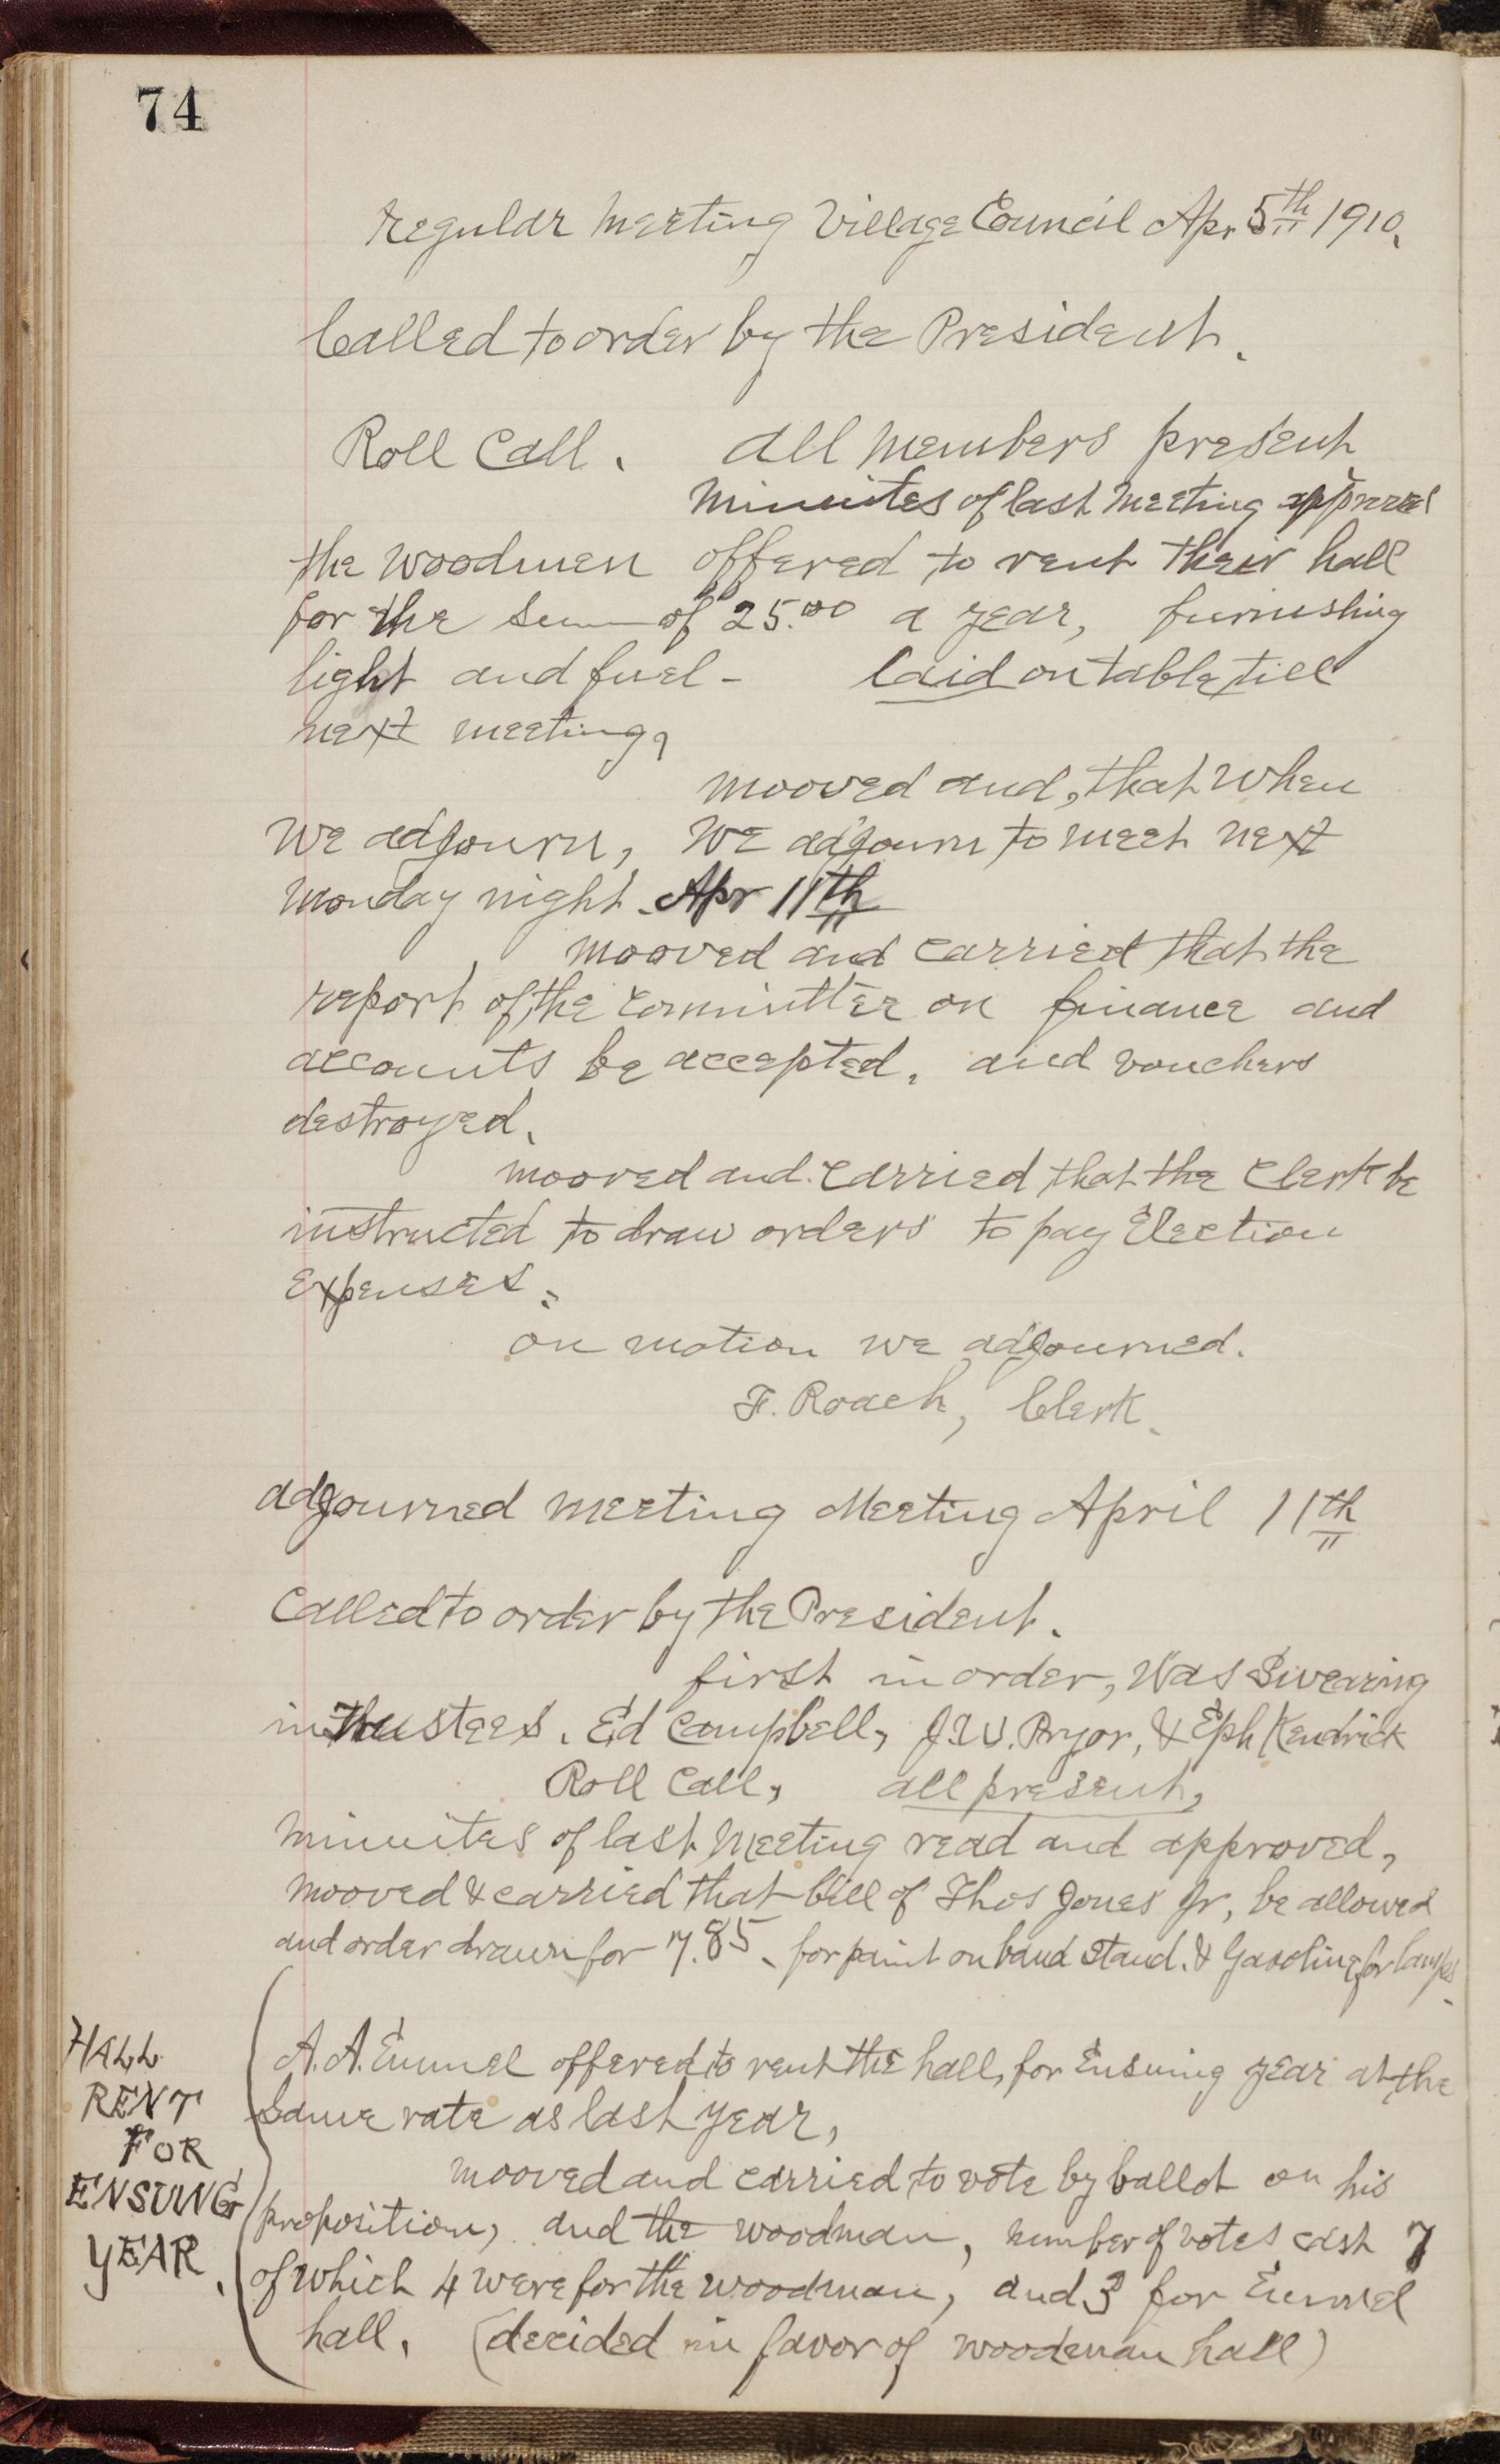 74
Regular Meeting Village Council Apr. 5th 1910.
Called to order by the President.
Roll Call. all members present
Minuites of last Meeting approved
the Woodmen offered to rent their hall
for the sum of 25.00 a year, furnishing
light and fuel - laid on table till
next meeting,
Mooved and, that When
We adjourn, We adjourn to meet next
Monday night. Apr 11th
Mooved and carried that the
report of the committee on finance and
accounts be accepted, and vouchers
destroyed.
Mooved and carried that the Clerk be
instructed to draw orders to pay Election
Expenses.
on motion we adjourned.
F. Roach, Clerk.
adjourned Meeting Meeting April 11th
Called to order by the President.
first in order, Was Swearing
in Trustees. Ed Campbell, J.W. Pryor, & Eph Kendrick
Roll Call, all present,
Minuites of last Meeting read and approved,
Mooved & carried that bill of Thos Jones Jr, be allowed
and order drawn for 7.85. for paint on band stand. & Gasoline for lamps.
HALL
RENT
FOR
ENSUING
YEAR.
A. A. Emmel offered to rent the hall, for Ensuing year at the
Same rate as last year,
Mooved and carried to vote by ballot on his
proposition, and the woodman, number of votes cast 7
of which 4 were for the woodman, and 3 for Emmel
hall. (decided in favor of woodman hall)